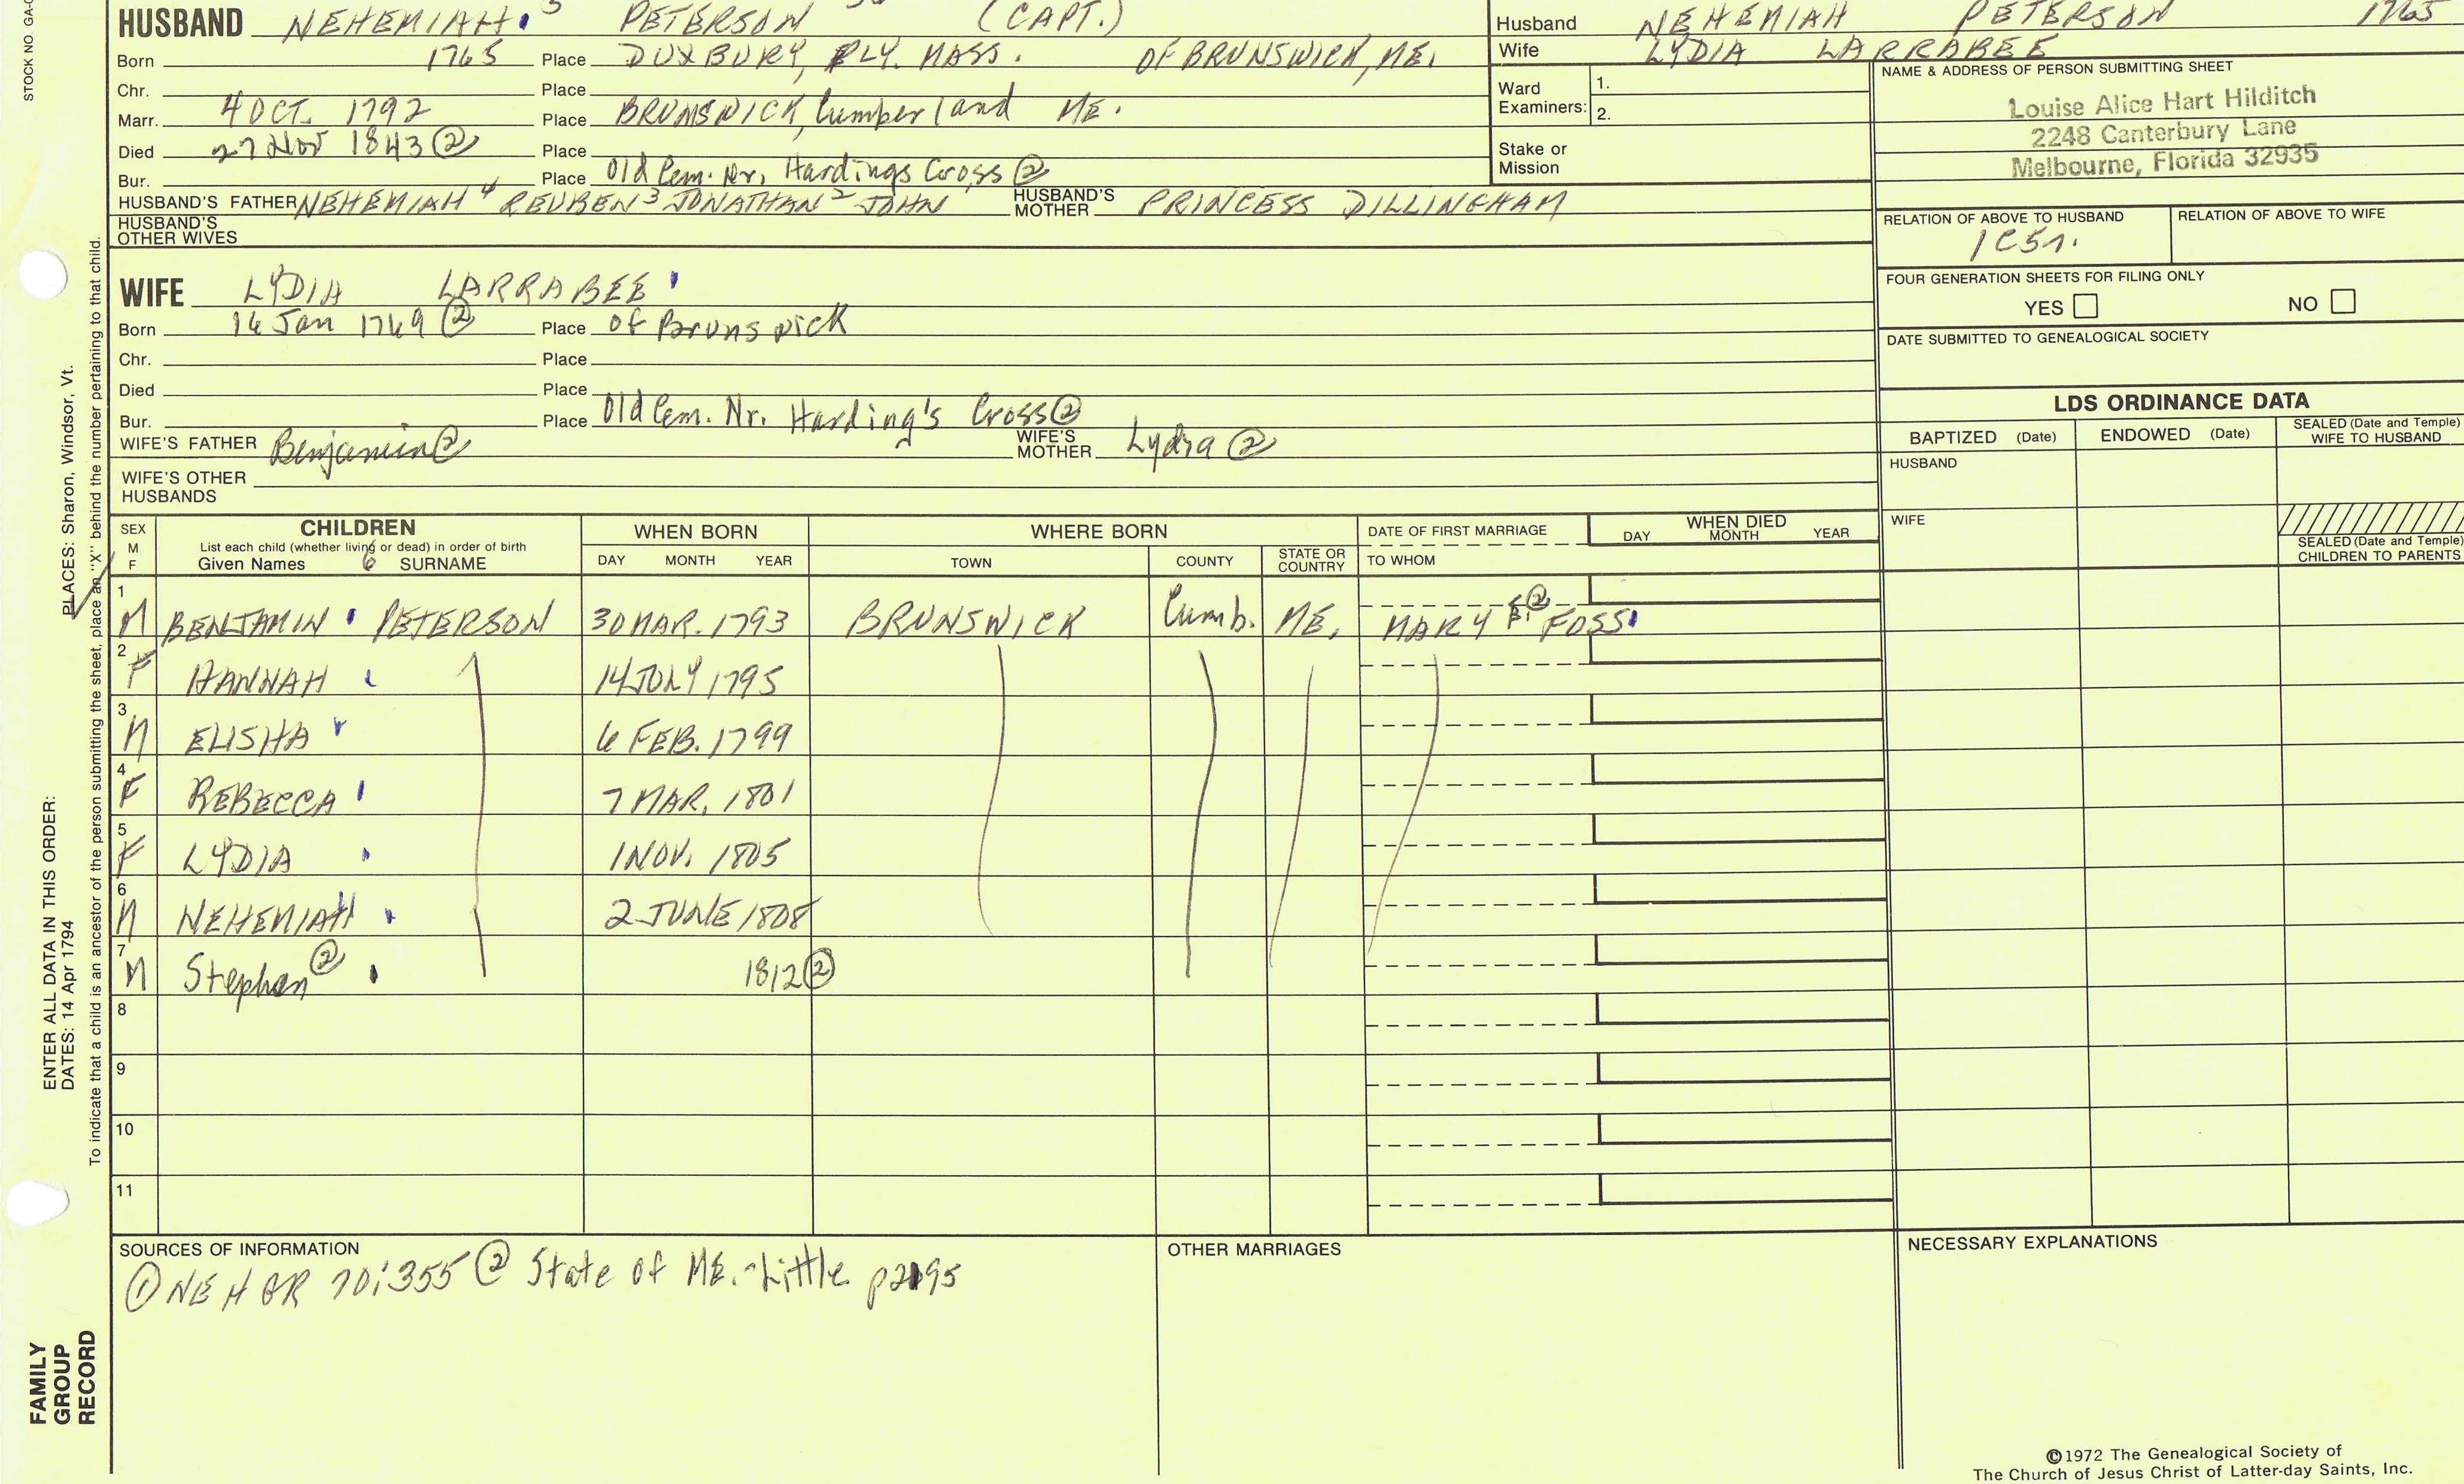 STOCK NO GA-
HUSBAND NEHEMIAH 5 PETERSON (CAPT.)
Born 1765 Place DUXBURY, PLY. MASS. OF BRUNSWICK, ME.
Chr. Place
Marr. 4 OCT. 1792 Place BRUNSWICK, Cumberland ME.
Died 27 Nov 1843 ② Place
Bur. Place Old Cem. Nr. Hardings Cross ②
HUSBAND'S FATHER NEHEMIAH 4 REUBEN 3 JONATHAN 2 JOHN HUSBAND'S MOTHER PRINCESS DILLINGHAM
HUSBAND'S OTHER WIVES
Husband NEHEMIAH PETERSON 1765
Wife LYDIA LARRABEE
Ward Examiners: 1.
2.
Stake or Mission
NAME & ADDRESS OF PERSON SUBMITTING SHEET
Louise Alice Hart Hilditch
2248 Canterbury Lane
Melbourne, Florida 32935
RELATION OF ABOVE TO HUSBAND RELATION OF ABOVE TO WIFE
1C5r.
FOUR GENERATION SHEETS FOR FILING ONLY
YES NO
DATE SUBMITTED TO GENEALOGICAL SOCIETY
WIFE LYDIA LARRABEE
Born 16 Jan 1769 ② Place of Brunswick
Chr. Place
Died Place
Bur. Place Old Cem. Nr. Harding's Cross ②
WIFE'S FATHER Benjamin ② WIFE'S MOTHER Lydia ②
WIFE'S OTHER HUSBANDS
LDS ORDINANCE DATA
BAPTIZED (Date) ENDOWED (Date) SEALED (Date and Temple) WIFE TO HUSBAND
HUSBAND
WIFE
SEALED (Date and Temple) CHILDREN TO PARENTS
SEX M F
CHILDREN
List each child (whether living or dead) in order of birth
Given Names 6 SURNAME
WHEN BORN
DAY MONTH YEAR
WHERE BORN
TOWN COUNTY STATE OR COUNTRY
DATE OF FIRST MARRIAGE
TO WHOM
WHEN DIED
DAY MONTH YEAR
1 M BENJAMIN PETERSON 30 MAR. 1793 BRUNSWICK Cumb. ME. MARY B. ② FOSS
2 F HANNAH 14 JULY 1795
3 M ELISHA 6 FEB. 1799
4 F REBECCA 7 MAR. 1801
5 F LYDIA 1 NOV. 1805
6 M NEHEMIAH 2 JUNE 1808
7 M Stephen ② 1812 ②
8
9
10
11
SOURCES OF INFORMATION
① NEHGR 70:355 ② State of ME. - Little p2195
OTHER MARRIAGES
NECESSARY EXPLANATIONS
©1972 The Genealogical Society of
The Church of Jesus Christ of Latter-day Saints, Inc.
PLACES: Sharon, Windsor, Vt.
ENTER ALL DATA IN THIS ORDER:
DATES: 14 Apr 1794
To indicate that a child is an ancestor of the person submitting the sheet, place an "X" behind the number pertaining to that child.
FAMILY
GROUP
RECORD